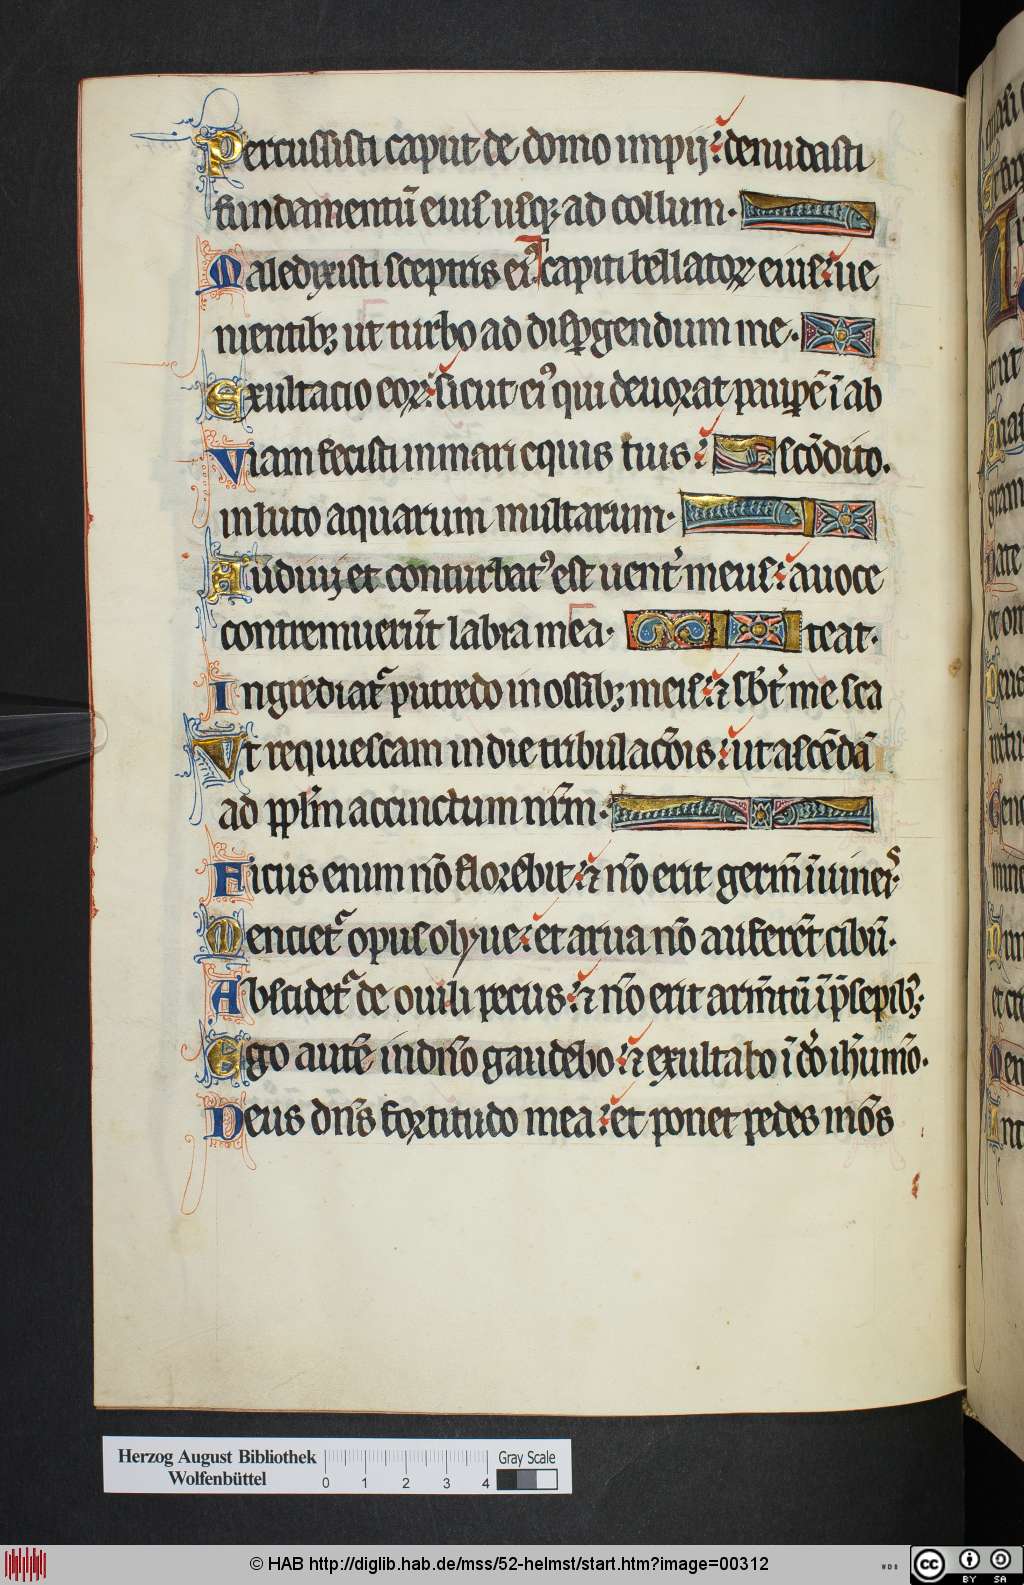 Percussisti caput de domo impij: denudasti
fundamentū eius usqꝫ ad collum.
Maledixisti sceptris eiꝰ capiti bellatoꝝ eius: ue
nientibꝫ ut turbo ad dispgendum me.
Exultacio eoꝝ: sicut eiꝰ qui deuorat pauꝑē ī ab
Viam fecisti in mari equis tuis: scōdito.
in luto aquarum multarum.
Audiui et conturbatꝰ est uent̾ meus: a uoce
contremuerūt labia mea. teat.
Ingrediat᷑ putredo in ossibꝫ meis: ⁊ sbt̾ me sca
Ut requiescam in die tribulacōis: ut ascēdā
ad ppl̄m accinctum nr̄m.
Ficus enim nō florebit: ⁊ nō erit germ̄ ī uineis.
Menciet᷑ opus olyue: et arua nō afferēt cibū.
Abscidet᷑ de ouili pecus: ⁊ nō erit arm̄tū ī p̄sepibꝫ.
Ego autē in dn̄o gaudebo: ⁊ exultabo ī dō ih̄u mō.
Deus dn̄s fortitudo mea: et ponet pedes mōs
Herzog August Bibliothek
Wolfenbüttel
0 1 2 3 4
Gray Scale
© HAB http://diglib.hab.de/mss/52-helmst/start.htm?image=00312
WDB
cc BY SA